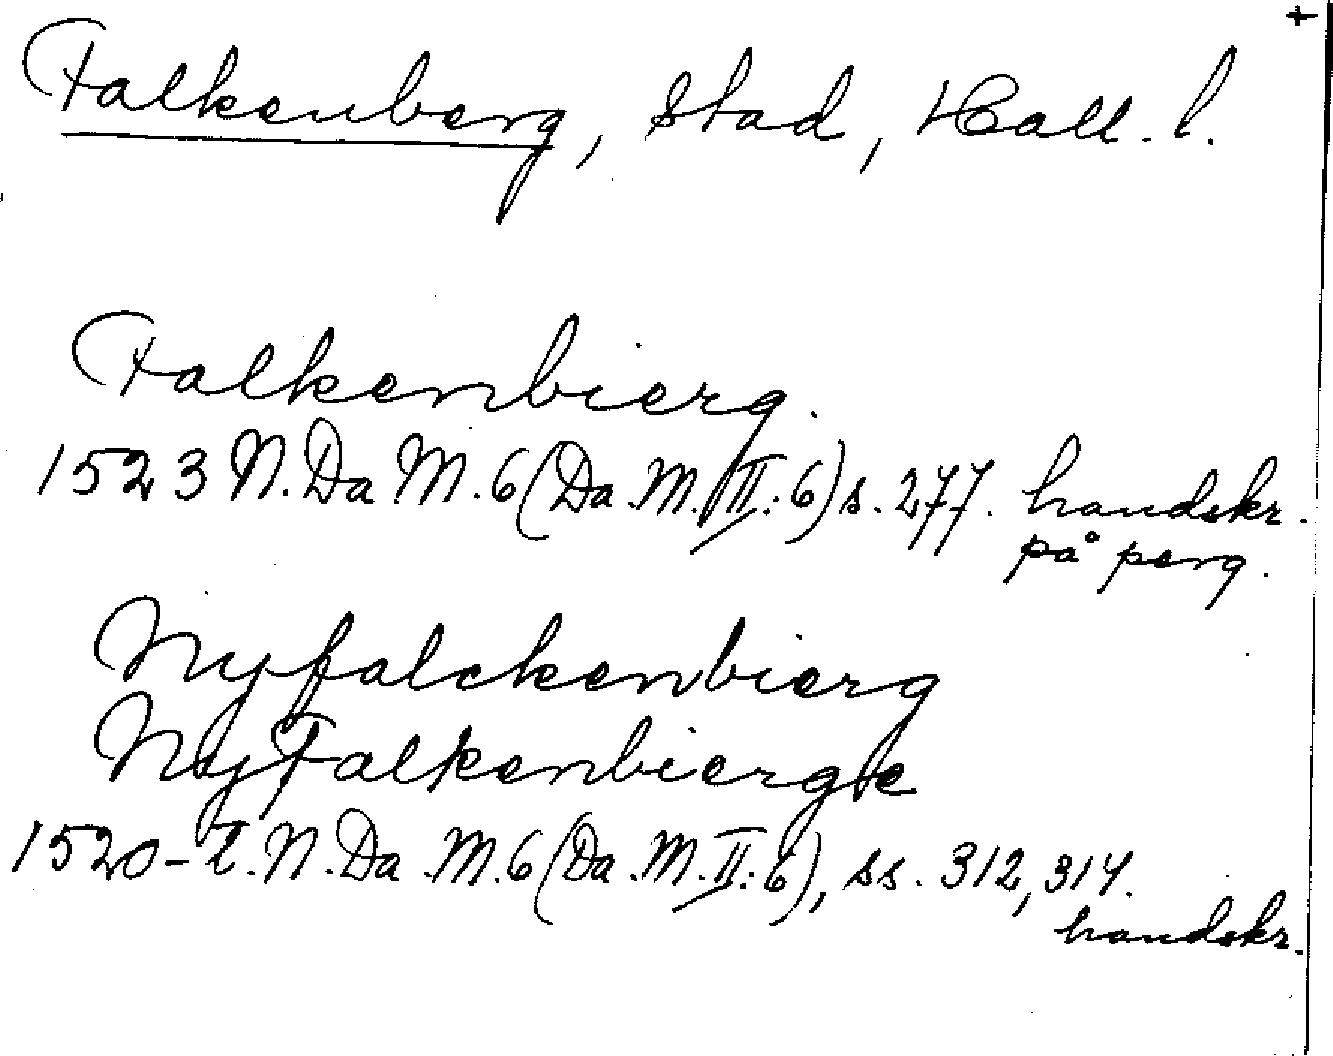 +
Falkenberg, stad, Hall. l.
Falkenbierg.
1523 N. Da M. 6 (Da. M. II: 6) s. 277. handskr.
på perg.
Nyfalckenbierg
NyFalkenbierge
1520-t. N. Da. M. 6 (Da. M. II: 6), ss. 312, 314.
handskr.